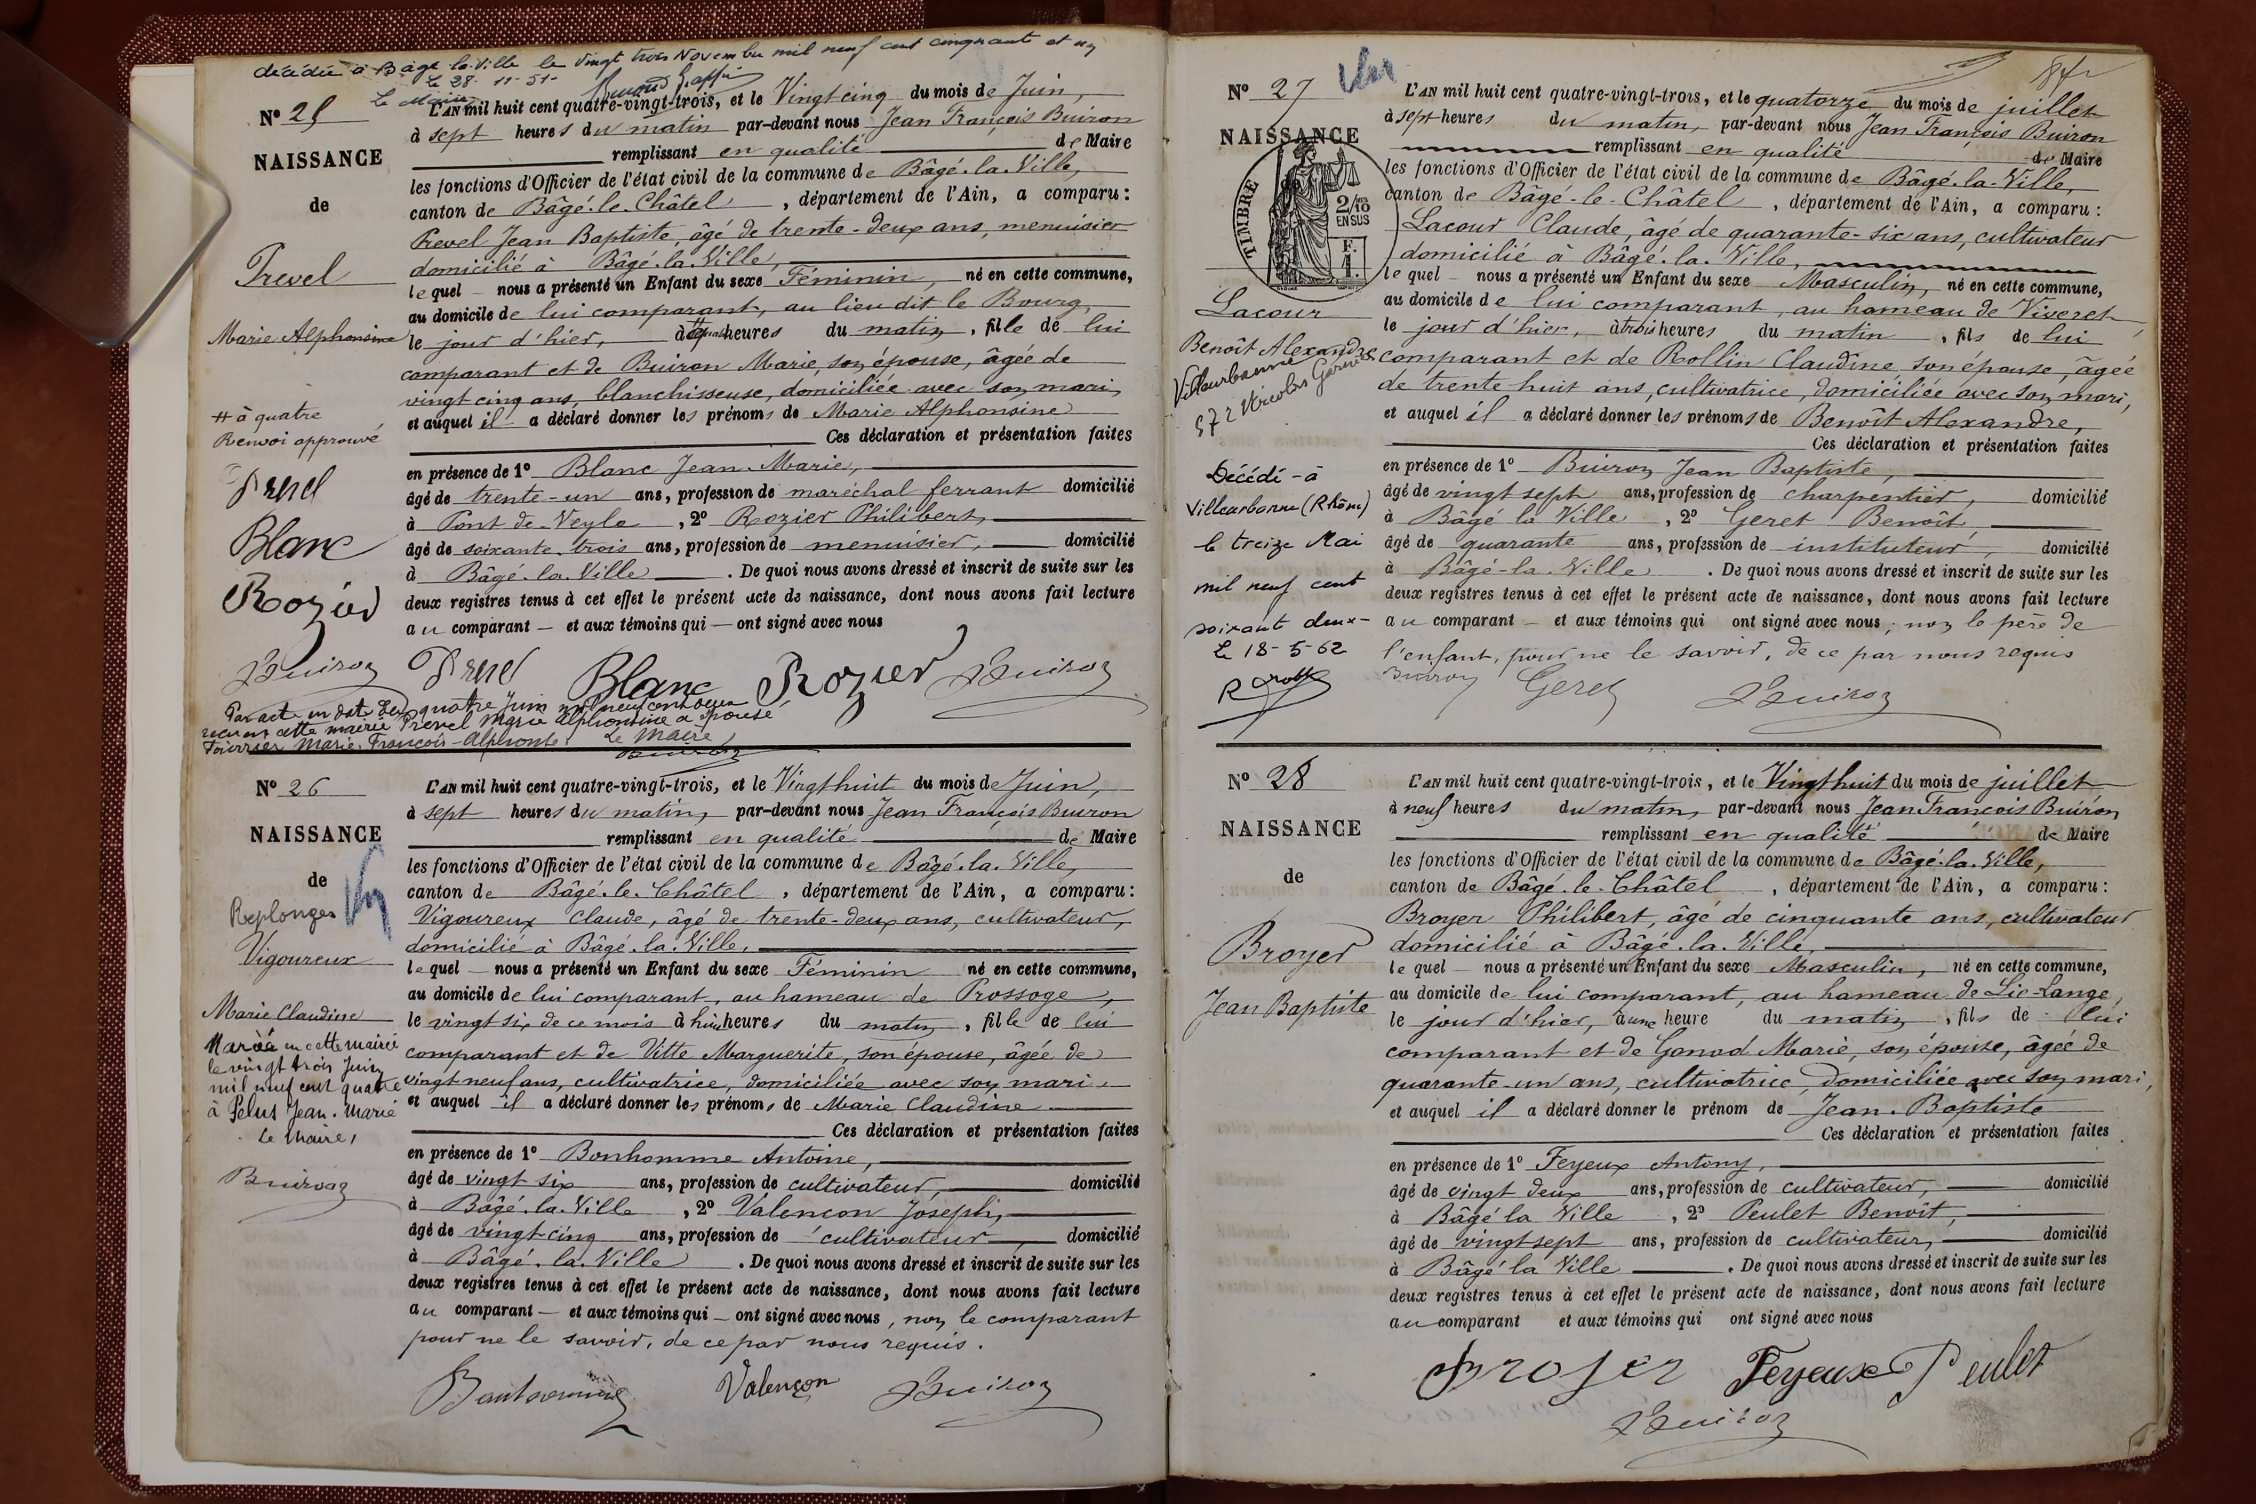 décédée à Bâgé-la-Ville le vingt trois Novembre mil neuf cent cinquante et un
Le 28-11-51-
Le Maire
N° 25
NAISSANCE
de
Prevel
Marie Alphonsine
# à quatre
Renvoi approuvé
Prevel
Blanc
Rozier
Buiron
L'AN mil huit cent quatre-vingt-trois, et le Vingt cinq du mois de Juin,
à sept heures du matin par-devant nous Jean François Buiron
remplissant en qualité de Maire
les fonctions d'Officier de l'état civil de la commune de Bâgé-la-Ville,
canton de Bâgé-le-Châtel, département de l'Ain, a comparu :
Prevel Jean Baptiste, âgé de trente-deux ans, menuisier
domicilié à Bâgé-la-Ville,
lequel nous a présenté un Enfant du sexe Féminin, né en cette commune,
au domicile de lui comparant, au lieu dit le Bourg,
le jour d'hier, à # heures du matin, fille de lui
comparant et de Buiron Marie, son épouse, âgée de
vingt cinq ans, blanchisseuse, domiciliée avec son mari,
et auquel il a déclaré donner les prénoms de Marie Alphonsine
Ces déclaration et présentation faites
en présence de 1° Blanc Jean-Marie,
âgé de trente-un ans, profession de maréchal ferrant domicilié
à Pont-de-Veyle, 2° Rozier Philibert,
âgé de soixante-trois ans, profession de menuisier, domicilié
à Bâgé-la-Ville. De quoi nous avons dressé et inscrit de suite sur les
deux registres tenus à cet effet le présent acte de naissance, dont nous avons fait lecture
au comparant — et aux témoins qui — ont signé avec nous
Prevel Blanc Rozier Buiron
Par acte en date du quatre Juin mil neuf cent deux
reçu en cette mairie Prevel Marie Alphonsine a épousé
Marie François-Alphonse. Le Maire
Buiron
N° 26
NAISSANCE
de
Replonges
Vigoureux
Marie Claudine
Mariée en cette mairie
le vingt trois Juin
mil neuf cent quatre
à Pelus Jean-Marie
Le Maire,
Buiron
L'AN mil huit cent quatre-vingt-trois, et le Vingt huit du mois de Juin,
à sept heures du matin, par-devant nous Jean François Buiron
remplissant en qualité de Maire
les fonctions d'Officier de l'état civil de la commune de Bâgé-la-Ville,
canton de Bâgé-le-Châtel, département de l'Ain, a comparu :
Vigoureux Claude, âgé de trente-deux ans, cultivateur,
domicilié à Bâgé-la-Ville,
lequel — nous a présenté un Enfant du sexe Féminin né en cette commune,
au domicile de lui comparant, au hameau de Prossoge,
le vingt six de ce mois à huit heures du matin, fille de lui
comparant et de Vitte Marguerite, son épouse, âgée de
vingt neuf ans, cultivatrice, domiciliée avec son mari,
et auquel il a déclaré donner les prénoms de Marie Claudine
Ces déclaration et présentation faites
en présence de 1° Bonhomme Antoine,
âgé de vingt six ans, profession de cultivateur, domicilié
à Bâgé-la-Ville, 2° Valençon Joseph,
âgé de vingt-cinq ans, profession de cultivateur, domicilié
à Bâgé-la-Ville. De quoi nous avons dressé et inscrit de suite sur les
deux registres tenus à cet effet le présent acte de naissance, dont nous avons fait lecture
au comparant — et aux témoins qui — ont signé avec nous, non le comparant
pour ne le savoir, de ce par nous requis.
Valençon Buiron
N° 27
NAISSANCE
de
TIMBRE
2/10
EN SUS
Lacour
Benoît Alexandre
Villeurbanne
Décédé-à
Villeurbanne (Rhône)
le treize Mai
mil neuf cent
soixante deux-
Le 18-5-62
L'AN mil huit cent quatre-vingt-trois, et le quatorze du mois de juillet
à sept heures du matin, par-devant nous Jean François Buiron
remplissant en qualité de Maire
les fonctions d'Officier de l'état civil de la commune de Bâgé-la-Ville,
canton de Bâgé-le-Châtel, département de l'Ain, a comparu :
Lacour Claude, âgé de quarante-six ans, cultivateur
domicilié à Bâgé-la-Ville,
lequel — nous a présenté un Enfant du sexe Masculin, né en cette commune,
au domicile de lui comparant, au hameau de Viveret,
le jour d'hier, à trois heures du matin, fils de lui
comparant et de Rollin Claudine, son épouse, âgée
de trente-huit ans, cultivatrice, domiciliée avec son mari,
et auquel il a déclaré donner les prénoms de Benoît Alexandre,
Ces déclaration et présentation faites
en présence de 1° Buiron Jean Baptiste,
âgé de vingt sept ans, profession de charpentier, domicilié
à Bâgé la Ville, 2° Geret Benoît
âgé de quarante ans, profession de instituteur, domicilié
à Bâgé-la-Ville. De quoi nous avons dressé et inscrit de suite sur les
deux registres tenus à cet effet le présent acte de naissance, dont nous avons fait lecture
au comparant — et aux témoins qui ont signé avec nous, non le père de
l'enfant, pour ne le savoir, de ce par nous requis
Buiron Geret Buiron
N° 28
NAISSANCE
de
Broyer
Jean Baptiste
L'AN mil huit cent quatre-vingt-trois, et le Vingt huit du mois de juillet
à neuf heures du matin, par-devant nous Jean François Buiron
remplissant en qualité de Maire
les fonctions d'Officier de l'état civil de la commune de Bâgé-la-Ville,
canton de Bâgé-le-Châtel, département de l'Ain, a comparu :
Broyer Philibert, âgé de cinquante ans, cultivateur
domicilié à Bâgé-la-Ville,
lequel — nous a présenté un Enfant du sexe Masculin, né en cette commune,
au domicile de lui comparant, au hameau de
le jour d'hier, à une heure du matin, fils de lui
comparant et de Gonod Marie, son épouse, âgée de
quarante-un ans, cultivatrice, domiciliée avec son mari,
et auquel il a déclaré donner le prénom de Jean-Baptiste
Ces déclaration et présentation faites
en présence de 1° Feyeux Antony,
âgé de vingt deux ans, profession de cultivateur, domicilié
à Bâgé la Ville, 2° Peulet Benoît,
âgé de vingt sept ans, profession de cultivateur, domicilié
à Bâgé la Ville. De quoi nous avons dressé et inscrit de suite sur les
deux registres tenus à cet effet le présent acte de naissance, dont nous avons fait lecture
au comparant et aux témoins qui ont signé avec nous
Broyer Feyeux Peulet
Buiron